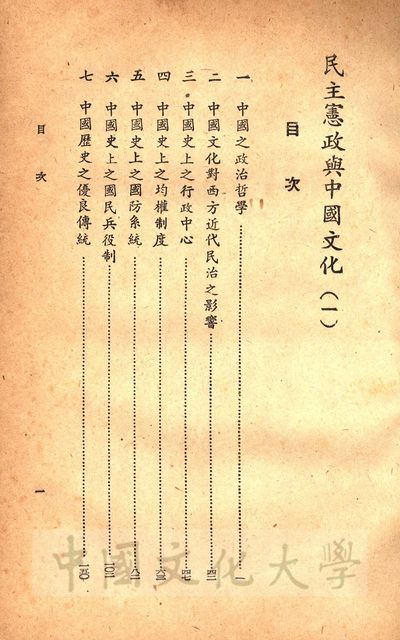 民主憲政與中國文化（一）
目次
一 中國之政治哲學……一
二 中國文化對西方近代民治之影響……四二
三 中國史上之行政中心……四七
四 中國史上之均權制度……六三
五 中國史上之國防系統……八一
六 中國史上之國民兵役制……一〇一
七 中國歷史之優良傳統……一五〇
目次
一
中國文化大學